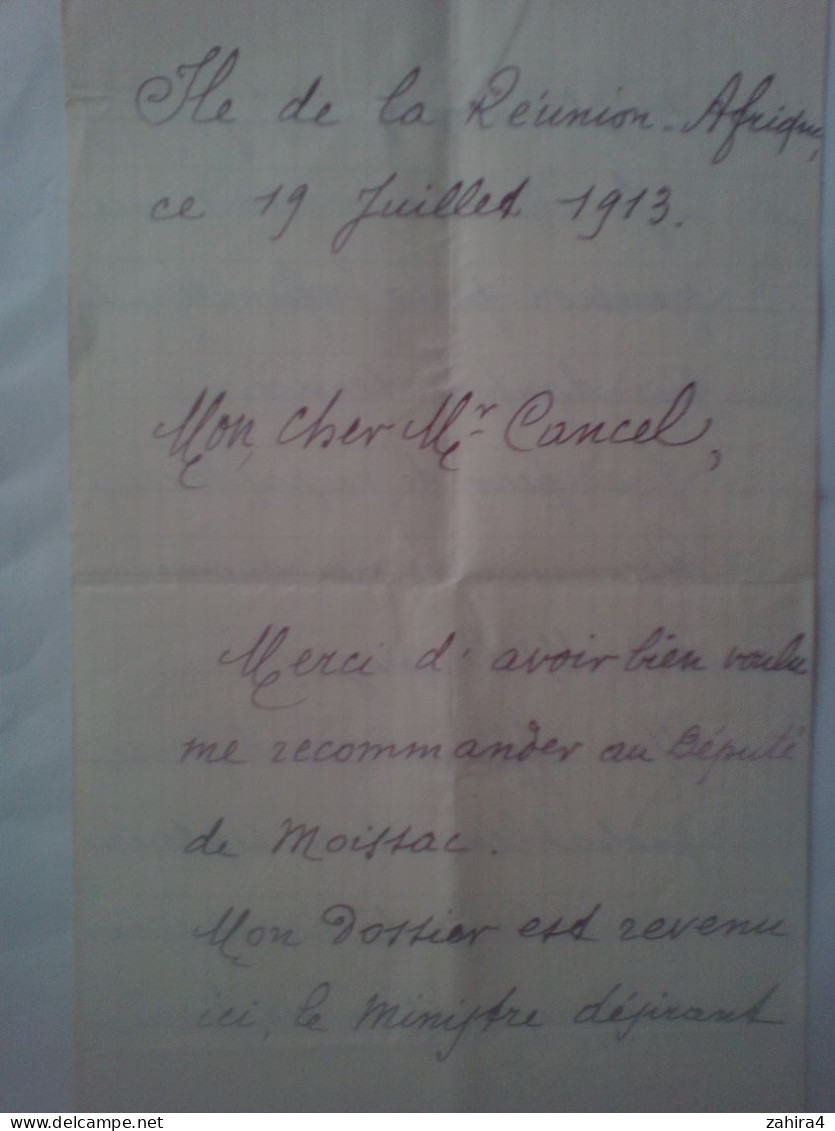 Île de la Réunion - Afrique,
ce 19 Juillet 1913.
Mon cher Mr Cancel,
Merci d'avoir bien voulu
me recommander au Député
de Moissac.
Mon Dossier est revenu
ici, le Ministre désirant
delcampe.net
zahira4